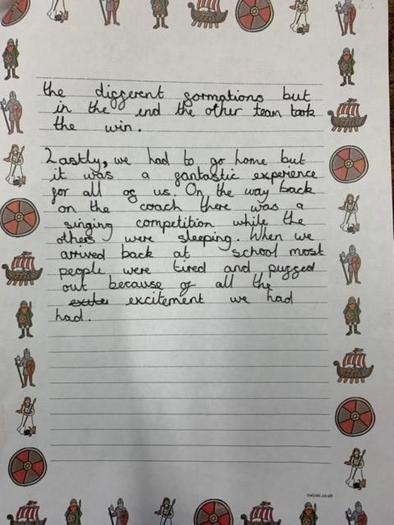 the different formations but
in the end the other team took
the win.
Lastly, we had to go home but
it was a fantastic experience
for all of us. On the way back
on the coach there was a
singing competition while the
others were sleeping. When we
arrived back at school most
people were tired and puffed
out because of all the
excitement we had
had.